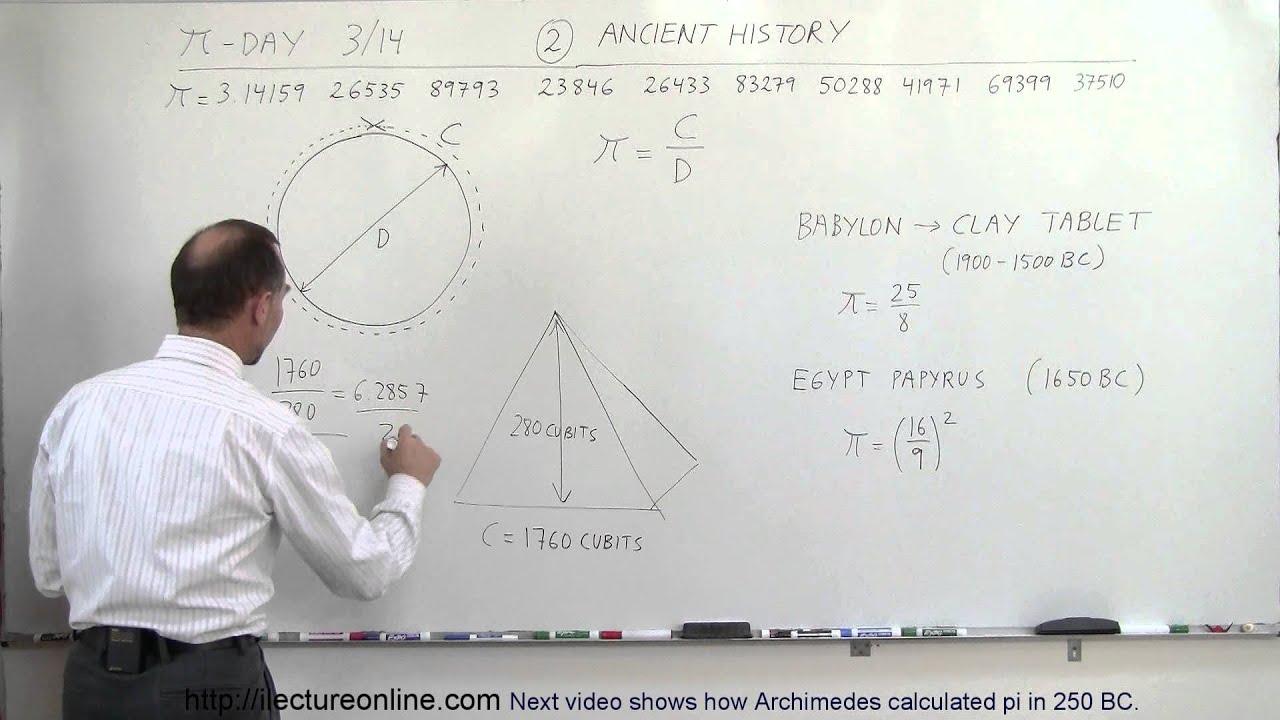 π-DAY 3/14 ② ANCIENT HISTORY
π = 3.14159 26535 89793 23846 26433 83279 50288 41971 69399 37510
C
D
π = C/D
BABYLON → CLAY TABLET
(1900 - 1500 BC)
π = 25/8
EGYPT PAPYRUS (1650 BC)
π = (16/9)²
1760/280 = 6.2857
2
280 CUBITS
C = 1760 CUBITS
http://ilectureonline.com Next video shows how Archimedes calculated pi in 250 BC.